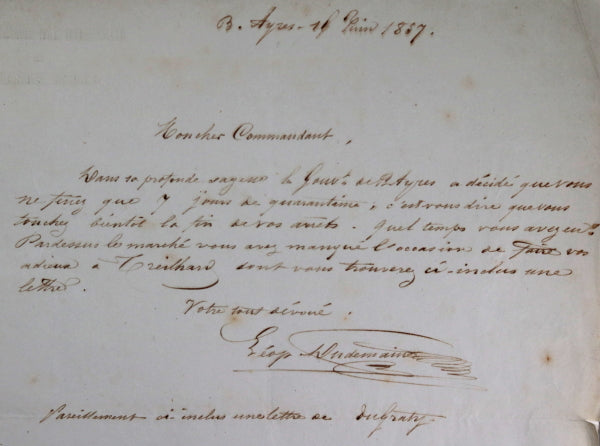 B. Ayres - Juin 1857.
Moncher Commandant,
Dans sa profonde sagesse le Gouvt. de B Ayres a décidé que vous
ne feriez que 7 jours de quarantaine, c'est vous dire que vous
touchez bientôt la fin de vos arrêts. Quel temps vous avez eu!
Pardessus le marché vous avez manqué l'occasion de faire vos
adieux à Treilhard dont vous trouverez ci-inclus une
lettre.
Votre tout dévoué.
Pareillement ci inclus une lettre de Dugraty